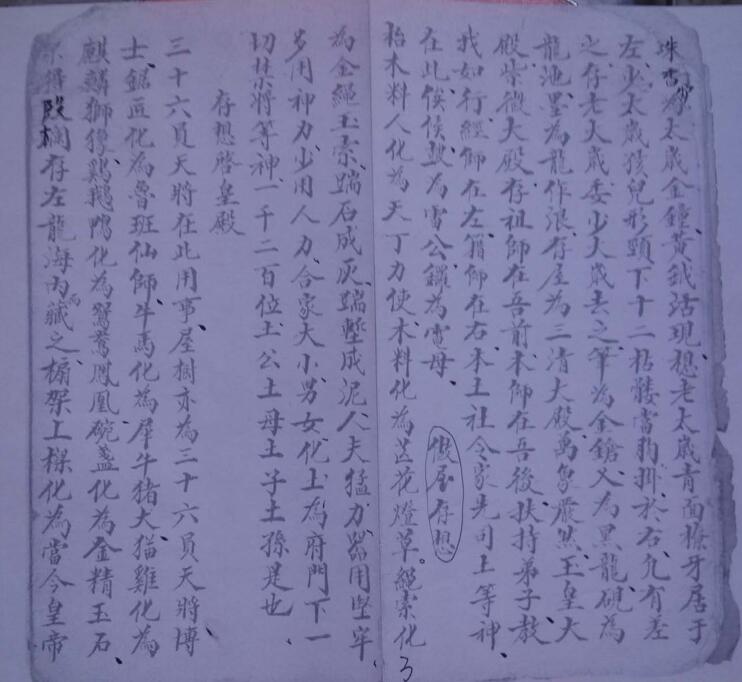 珠雷為太歲金鐘、黃鉞活現、想老太歲青面獠牙居于
左、少太歲孩兒形、頸下十二枯髏當胸掛於右、允有差
之、存老太歲委少太歲去之、筆為金鎗、又為黑龍、硯為
龍池、墨為龍作浪、存屋為三清大殿、萬象嚴然、玉皇大
殿紫微大殿、存祖師在吾前、本師在吾後、扶持弟子、教
我如行、經師在左、籍師在右、本土社令家先司上等神、
在此俟候、鼓為雷公、鑼為電母、
做屋存想
抬木料人化為天丁力使、木料化為芒花燈草。繩索化
為金繩玉索、踹石成灰、踹塹成泥、人夫猛力、器用堅牢、
多用神力、少用人力、合家大小男女化土為府門下一
切禁將等神、一千二百位土公土母土子土孫是也、
存想啓皇殿
三十六員天將在此用事、屋樹亦為三十六員天將、博
士鋸匠化為魯班仙師、牛馬化為犀牛、猪犬猫雞化為
麒麟獅象、鷄鵝鴨化為鴛鴦鳳凰、碗盞化為金精玉石、
欄存左龍海內而藏之、橱架上樑化為當今皇帝
3